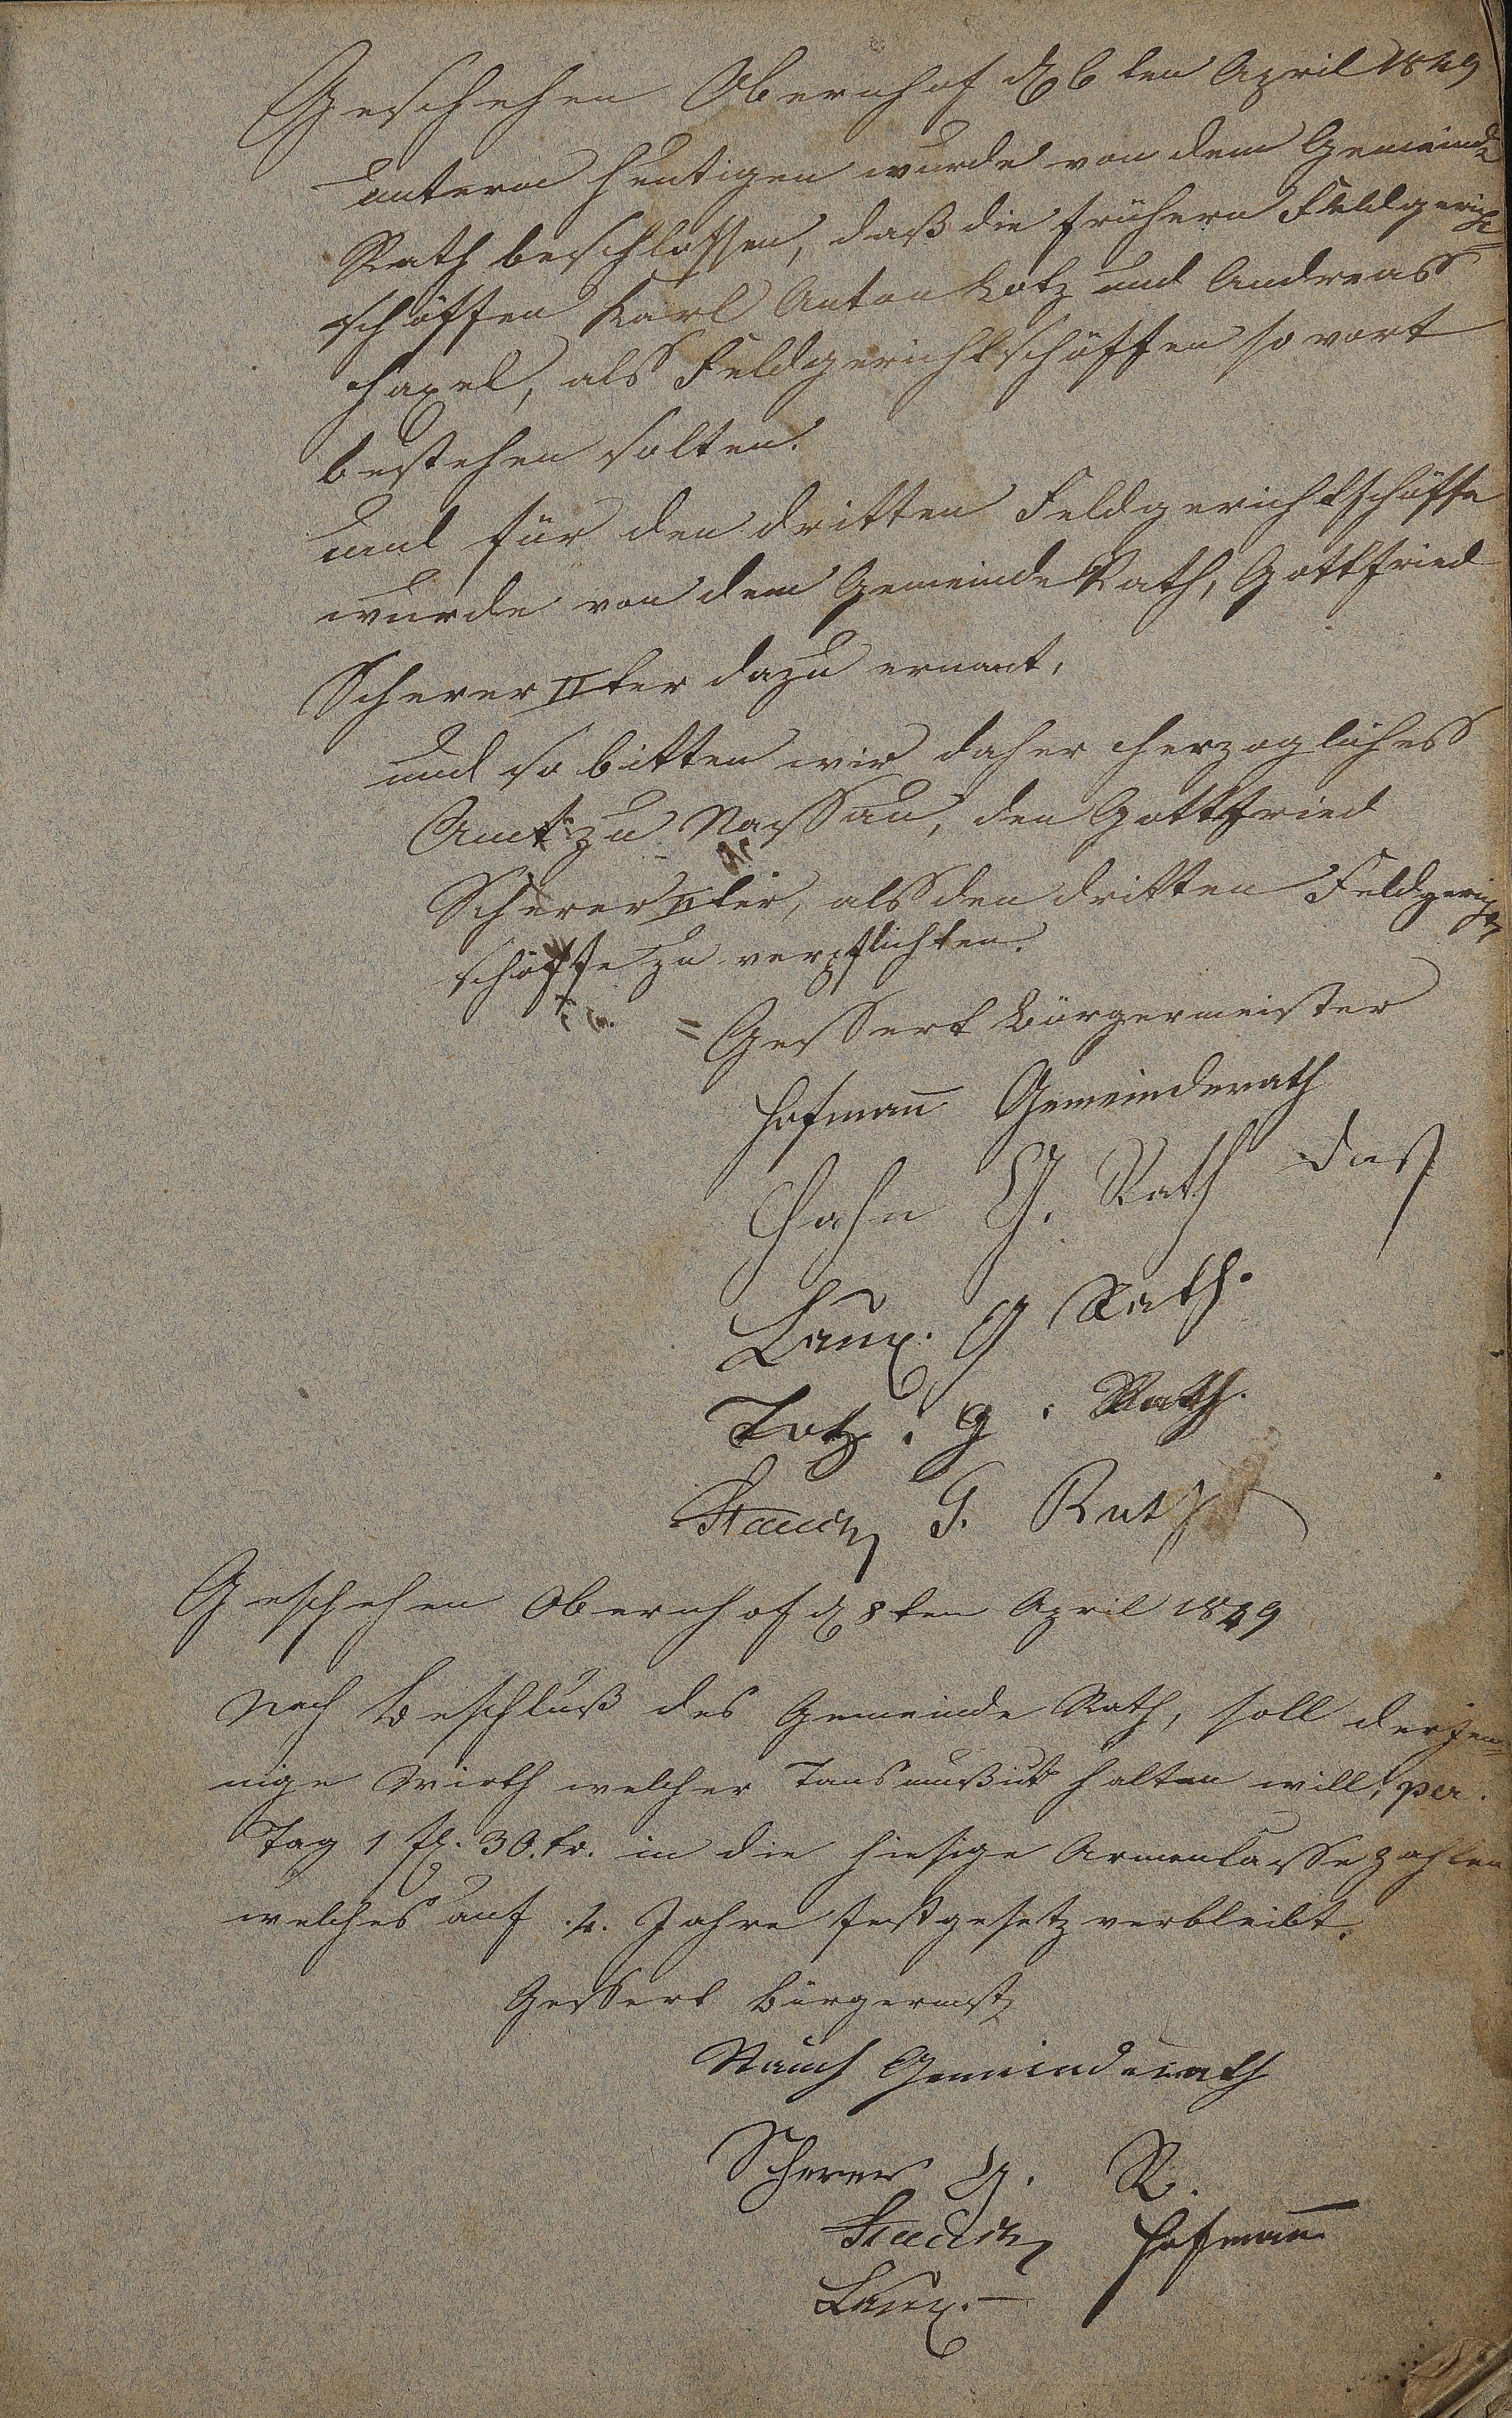 Geschehen Obernhof d 6ten April 1849
unterm heutigen wurde von dem Gemeinde
Rath beschlossen, daß die frühern Feldgerichts=
schöffen Karl Anton Lotz und Andreas
Haxel, als Feldgerichtschöffen so vort
bestehen solten.
und für den dritten Feldgerichtschöffe
wurde von dem Gemeinde Rath, Gottfried
Scherer IIter dazu ernant,
und so bitten wir daher Herzogliches
Amt zu Nassau, den Gottfried
Scherer IIter, als den dritten Feldgerichts
schöffe zu verpflichten.
= Gessert Bürgermeister
Hofman̄ Gemeinderath
Hahn G. Rath das
Laux. G Rath.
Lotz. G. Rath.
G. Rath
Geschehen Obernhof d 8ten April 1849
Nach Beschluß des Gemeinde Rath, soll derjen=
nige Wirth welcher Tansmußick halten will, per.
Tag 1 fl. 30. kr. in die hiesige Armenkasse zahlen
welches auf Jahre festgesetz verbleibt.
Gessert Bürgermstr
Rauch Gemeinderath
Scherer G. R.
Hofman̄
Laux.